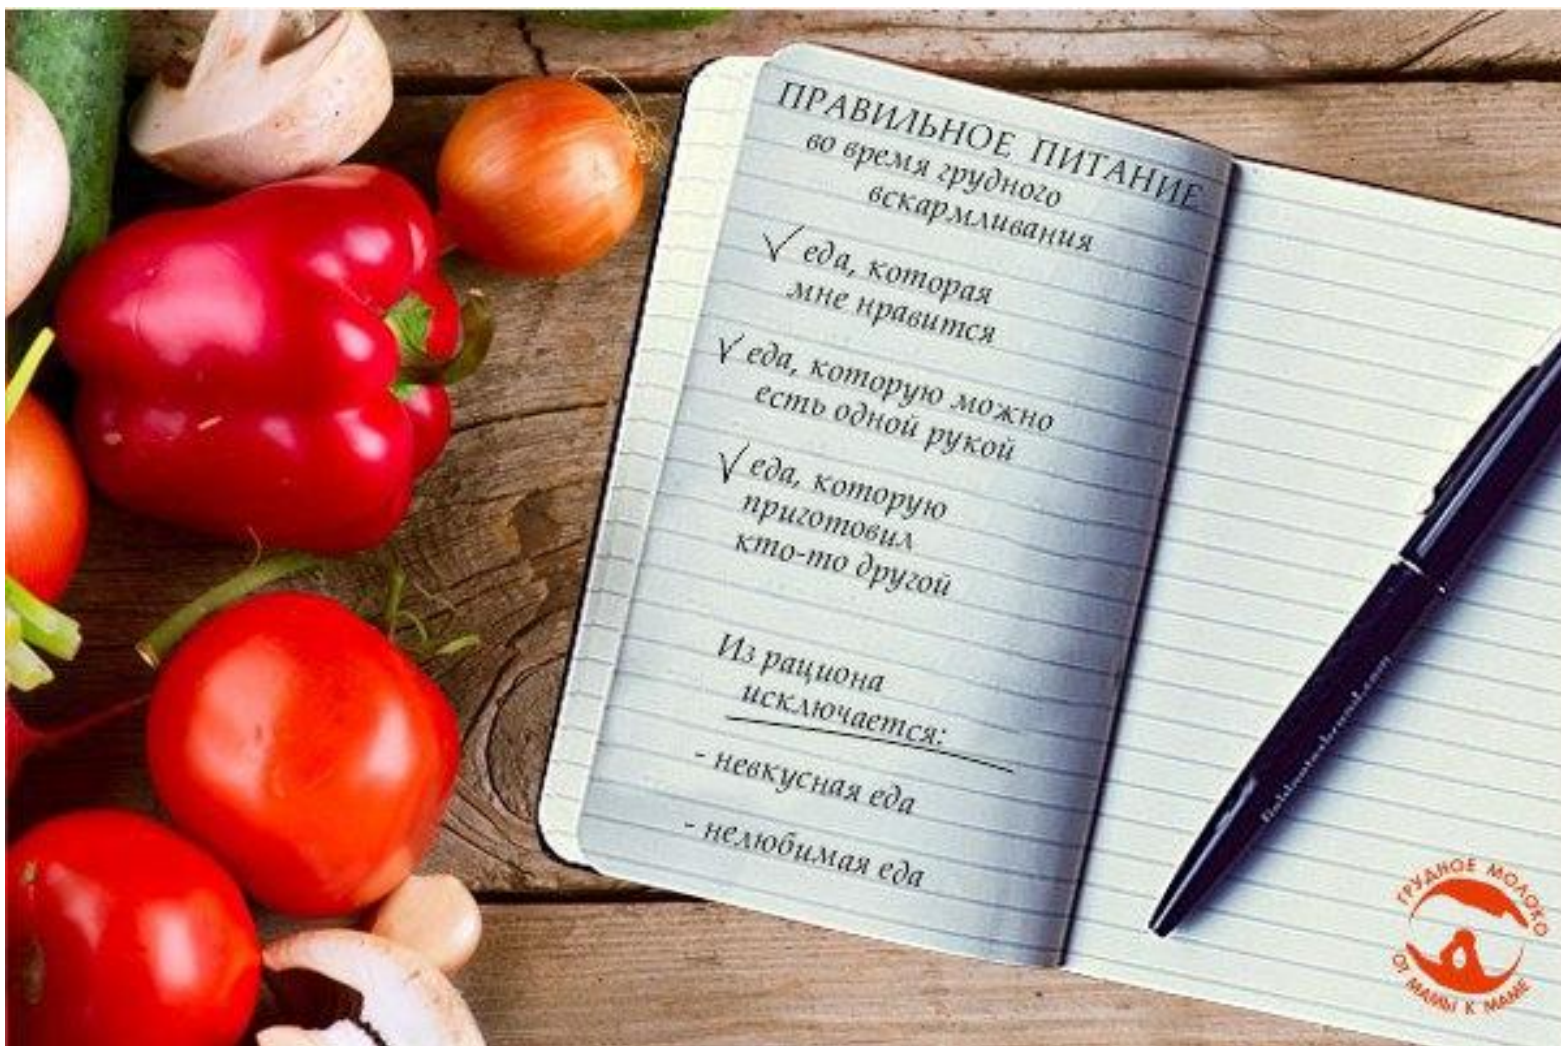 ПРАВИЛЬНОЕ ПИТАНИЕ
во время грудного
вскармливания
еда, которая
мне нравится
еда, которую можно
есть одной рукой
еда, которую
приготовил
кто-то другой
Из рациона
исключается:
- невкусная еда
- нелюбимая еда
ГРУДНОЕ МОЛОКО
ОТ МАМЫ К МАМЕ